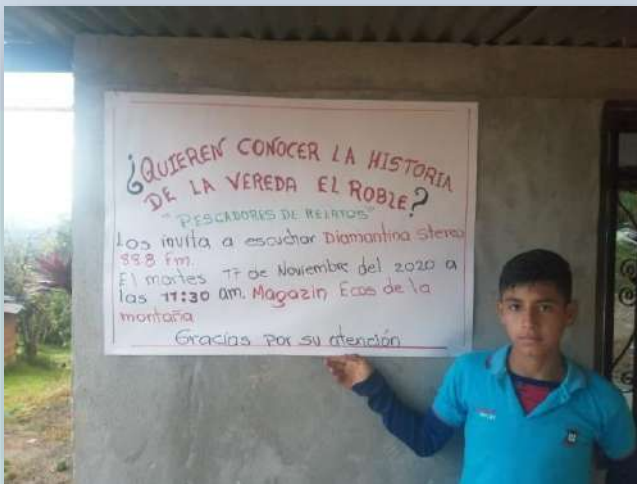 ¿QUIEREN CONOCER LA HISTORIA
DE LA VEREDA EL ROBLE?
"PESCADORES DE RELATOS"
Los invita a escuchar Diamantina stereo
88.8 fm.
El martes 17 de Noviembre del 2020 a
las 11:30 am. Magazin Ecos de la
montaña
Gracias por su atención